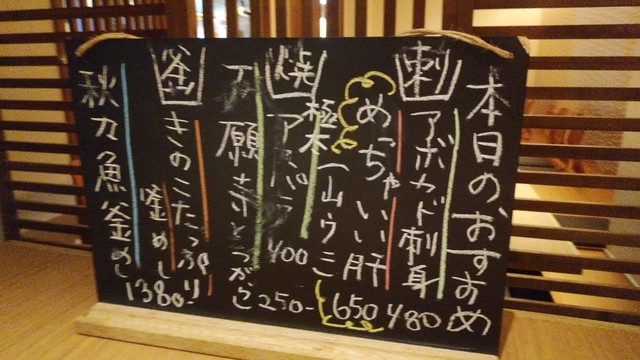 本日の、おすすめ
刺
アボカド刺身 480
めっちゃいい肝
山ウニ 650
焼
極太
アスパラ 400
万願寺とうがらし 250-
釜
きのこたっぷり
釜めし 1380
秋刀魚釜めし